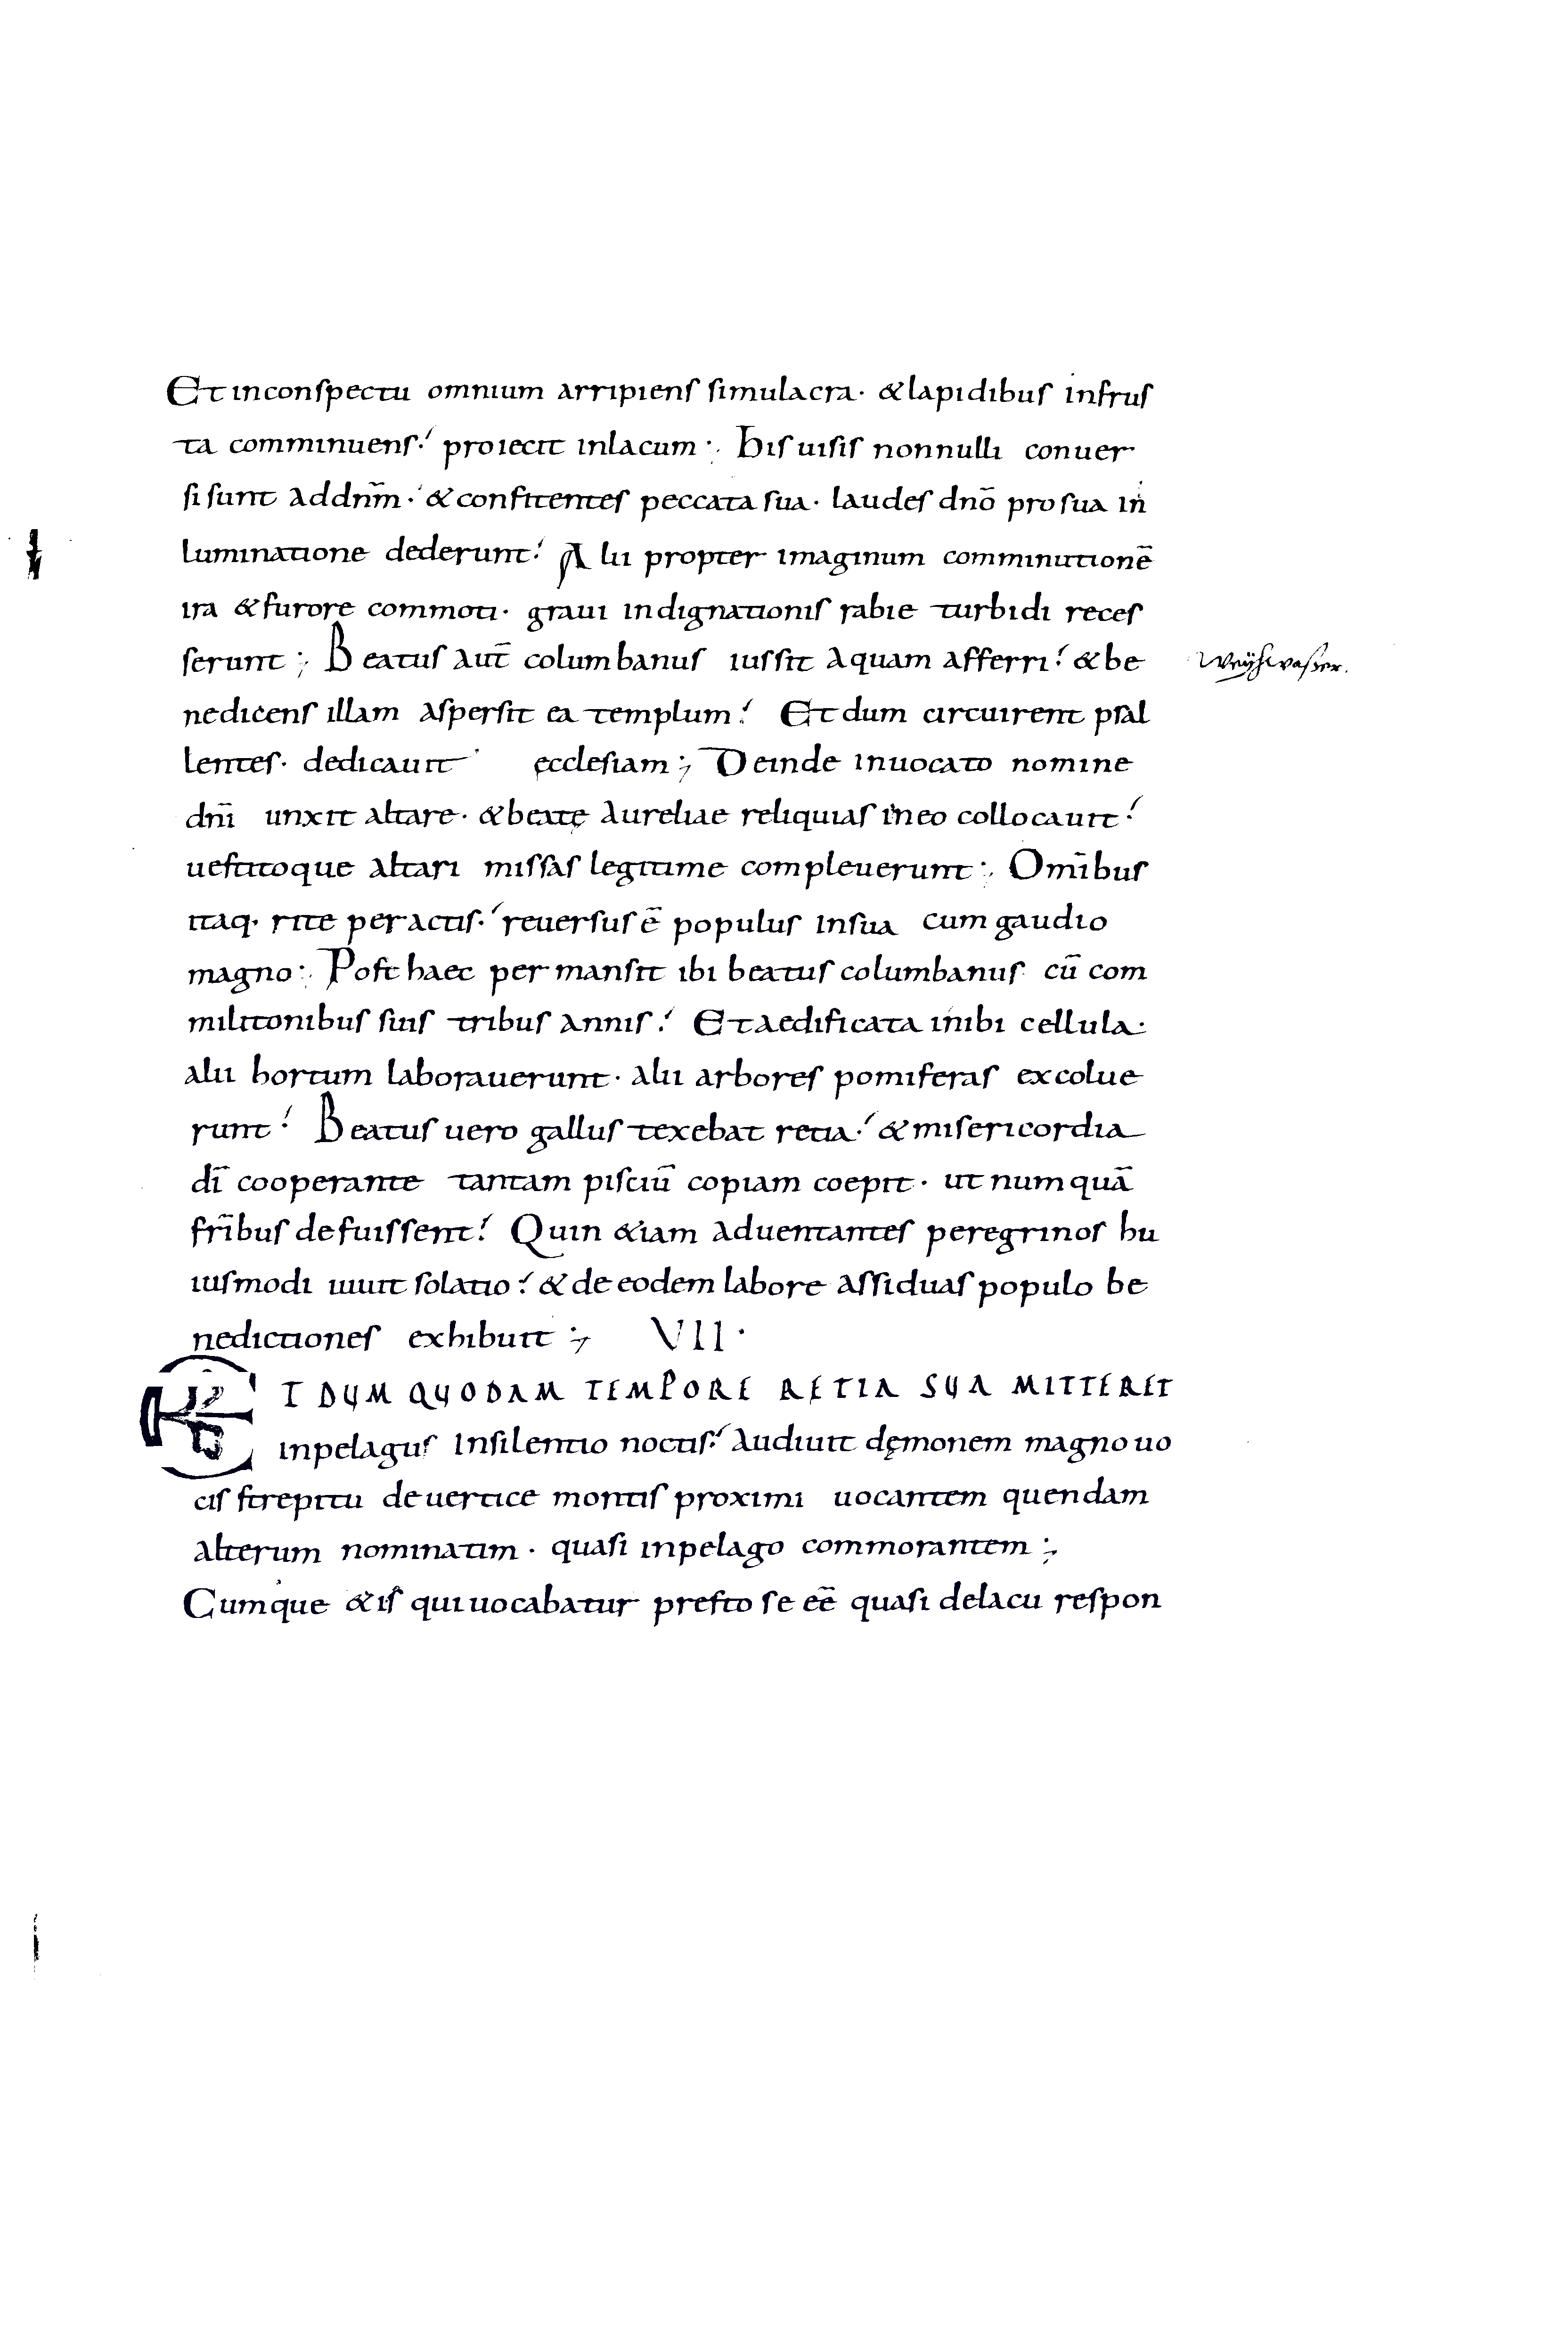 Et inconspectu omnium arripiens simulacra· & lapidibus infrus
ta comminuens·́ proiecit inlacum·, His uisis nonnulli conuer
si sunt ad dnm̄·́ & confitentes peccata sua· laudes dnō pro sua in
luminatione dederunt·́ Alii propter imaginum comminutionē
ira & furore commoti· graui indignationis rabie turbidi reces
serunt·, Beatus aut̄ columbanus iussit aquam afferri·́ & be
nedicens illam aspersit ea templum·́ Et dum circuirent psal
lentes· dedicauit ęcclesiam·, Deinde inuocato nomine
dn̄i unxit altare· & beatę Aureliae reliquias in eo collocauit·́
uestitoque altari missas legitime compleuerunt·, Omīibus
itaq· rite peractis·́ reuersus ē populus insua cum gaudio
magno·, Post haec permansit ibi beatus columbanus cū com
militonibus suis tribus annis·́ Et aedificata inibi cellula·
alii hortum laborauerunt· alii arbores pomiferas excolue
runt·́ Beatus uero gallus texebat retia·́ & misericordia
dī cooperante tantam pisciū copiam coepit· ut numquā
fr̄ibus defuissent·́ Quin &iam aduentantes peregrinos hu
iusmodi iuuit solatio·́ & de eodem labore assiduas populo be
nedictiones exhibuit·, VII·
ET DUM QUODAM TEMPORE RETIA SUA MITTERET
inpelagus Insilentio noctis·́ Audiuit dęmonem magno uo
cis strepitu de uertice montis proximi uocantem quendam
alterum nominatim· quasi inpelago commorantem·,
Cumque & is qui uocabatur presto se eē quasi delacu respon
Weÿhwasser.